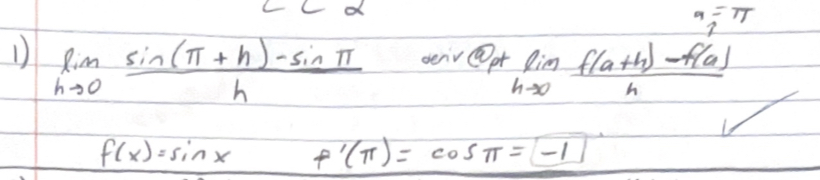 a = π
1) lim h→0 sin(π + h) - sin π / h deriv @ pt lim h→0 f(a+h) - f(a) / h
f(x) = sin x f'(π) = cos π = -1